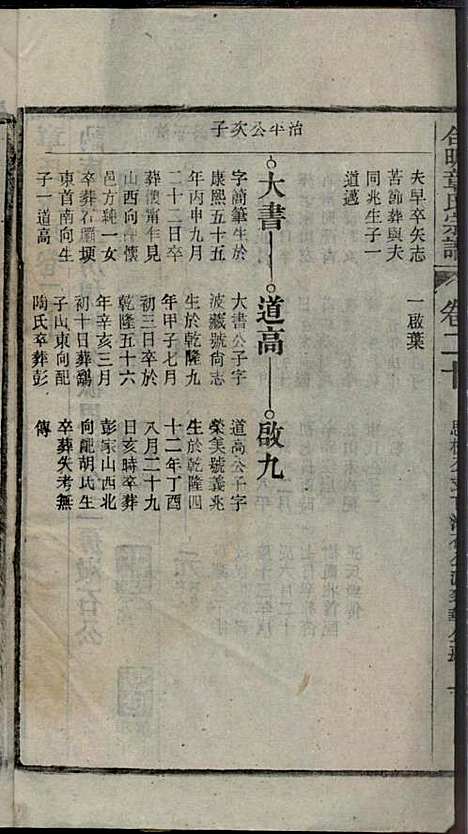 合肥章氏宗譜
卷二十
夫早卒矢志
苦節葬與夫
同兆生子一
道邁
一啟葉
治平公次子
大書
字簡筆生於
康熙五十五
年丙申九月
二十二日卒
葬懷甯年見
山西向
邑方
一女
卒葬石
東首南向生
子一道高
道高
大書公子字
波藏號尚志
生於乾隆九
年甲子七月
初三日卒於
乾隆五十六
年辛亥三月
初十日葬鷂
子山東向配
陶氏卒葬彭
啟九
道高公子字
榮美號義兆
生於乾隆四
十二年丁酉
八月二十九
日亥時卒葬
彭家山西北
向配胡氏生
卒葬失考無
傳